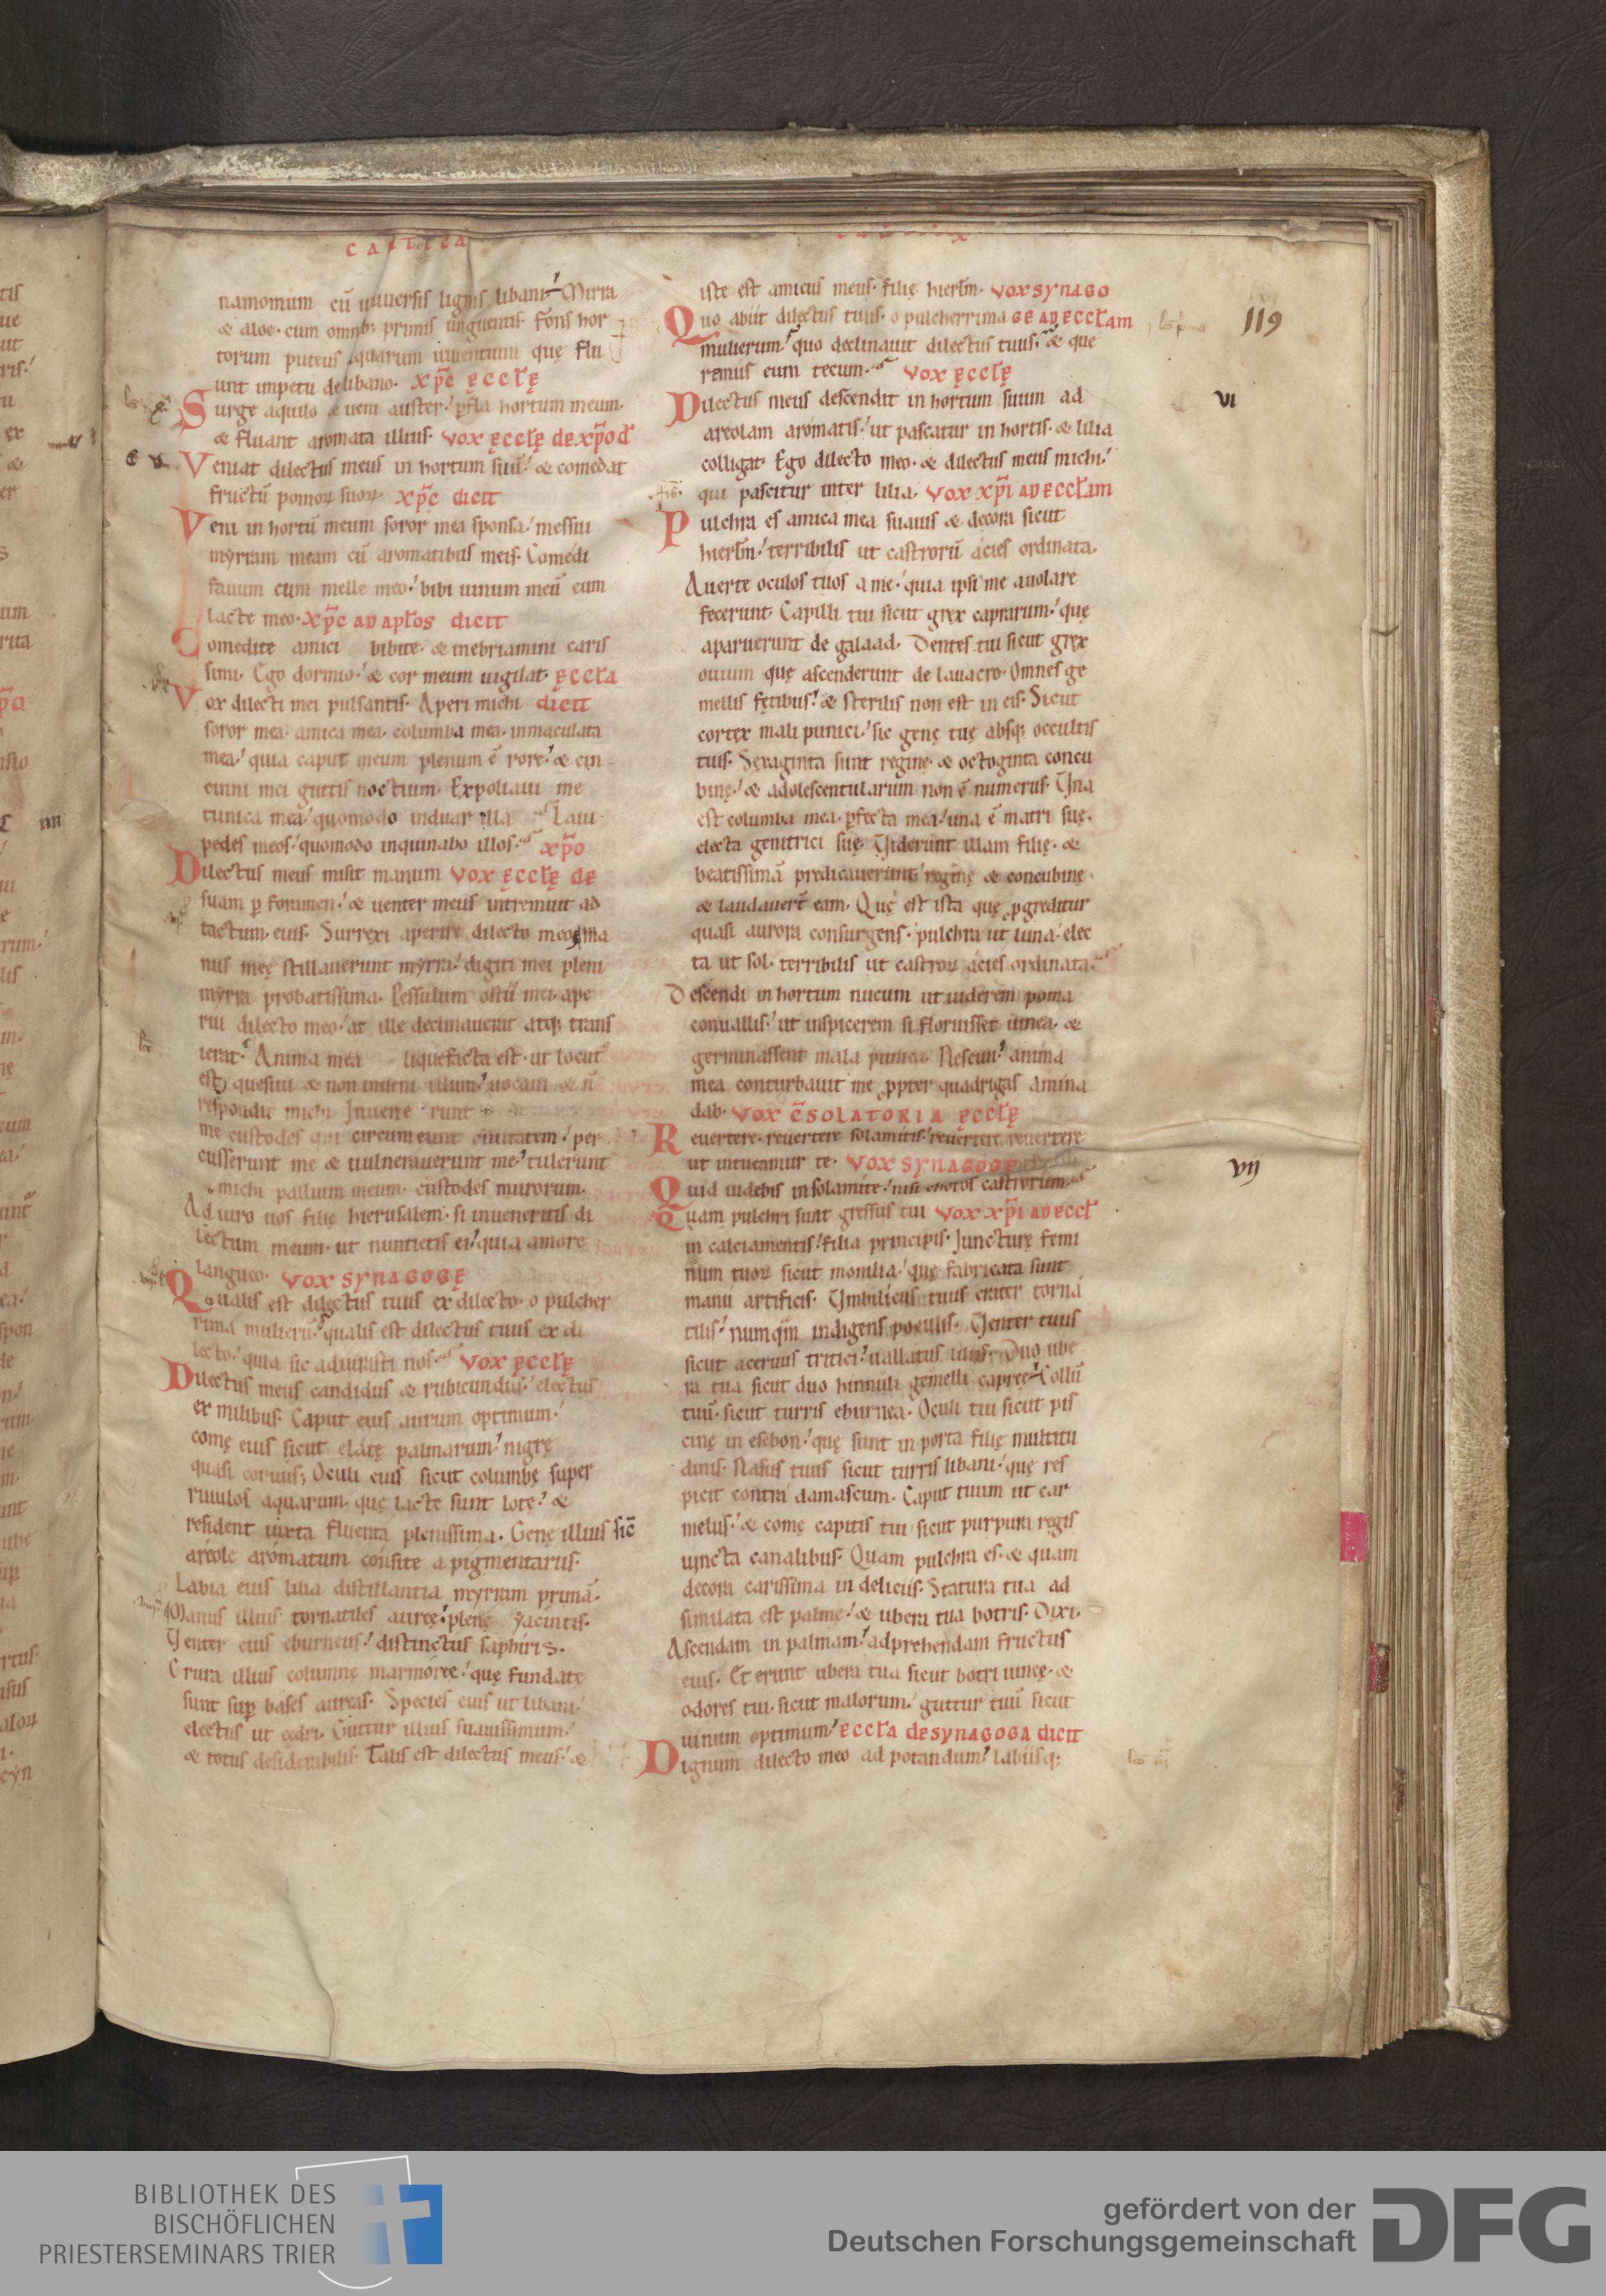 CANTICA
namomum cū uniuersis lignis libani. Mirra
& aloe. cum omnib; primis unguentis. Fons hor
torum puteus aquarum uiuentium quę flu
unt impetu delibano. XP̄C ECCL̄Ę
Surge aquilo & ueni auster. ꝑfla hortum meum.
& fluant aromata illius. VOX ĘCCL̄Ę DE XP̄O D̄
Veniat dilectus meus in hortum suū. & comedat
fructū pomoꝝ suoꝝ. XP̄C DICIT
Veni in hortū meum soror mea sponsa. messui
myrram meam cū aromatibus meis. Comedi
fauum cum melle meo. bibi uinum meū cum
lacte meo. XP̄C AD APL̄OS DICIT
Comedite amici bibite. & inebriamini caris
simi. Ego dormio. & cor meum uigilat. ECCL̄A
Vox dilecti mei pulsantis. Aperi michi DICIT
soror mea. amica mea. columba mea. inmaculata
mea. quia caput meum plenum ē rore. & cin
cinni mei guttis noctium. Expoliaui me
tunica mea. quomodo induar illa Laui
pedes meos. quomodo inquinabo illos. XP̄O
Dilectus meus misit manum VOX ĘCCL̄Ę DE
suam ꝑ foramen. & uenter meus intremuit ad
tactum eius. Surrexi aperire dilecto meo. ma
nus meę stillauerunt myrra. digiti mei pleni
myrra probatissima. Pessulum ostii mei ape
rui dilecto meo. at ille declinauerat atq; trans
ierat. Anima mea liquefacta est. ut locut᾽
est quesiui & non inueni illum. uocaui & n̄
respondit michi. Inuene runt
me custodes qui circumeunt ciuitatem. per
cusserunt me & uulnerauerunt me. tulerunt
michi pallium meum. custodes murorum.
Adiuro uos filię hierusalem. si inueneritis di
lectum meum. ut nuntietis ei. quia amore
langueo. VOX SYNAGOGĘ
Qualis est dilectus tuus ex dilecto. o pulcher
rima mulierū. qualis est dilectus tuus ex di
lecto. quia sic adiurasti nos. VOX ĘCCL̄Ę
Dilectus meus candidus & rubicundus. electus
ex milibus. Caput eius aurum optimum.
comę eius sicut elatę palmarum. nigrę
quasi coruus; Oculi eius sicut columbę super
riuulos aquarum. quę lacte sunt lotę. &
resident iuxta fluenta plenissima. Genę illius sic̄
areole aromatum consite a pigmentariis.
Labia eius lilia distillantia myrram primā.
Manus illius tornatiles aureę. plenę yacintis.
Uenter eius eburneus. distinctus saphiris.
Crura illius columnę marmoree. quę fundatę
sunt suꝑ bases aureas. Species eius ut libani.
electus ut cędri. Guttur illius suauissimum.
& totus desiderabilis. Talis est dilectus meus. &
iste est amicus meus. filię hierl̄m. VOX SYNAGO
Quo abiit dilectus tuus. o pulcherrima GE AD ECCL̄AM
mulierum. quo declinauit dilectus tuus. & que
remus eum tecum. VOX ĘCCL̄Ę
Dilectus meus descendit in hortum suum ad
areolam aromatis. ut pascatur in hortis. & lilia
colligat. Ego dilecto meo. & dilectus meus michi.
qui pascitur inter lilia. VOX XP̄I AD ECCL̄AM
Pulchra es amica mea suauis & decora sicut
hierl̄m. terribilis ut castrorū acies ordinata.
Auerte oculos tuos a me. quia ipsi me auolare
fecerunt. Capilli tui sicut grex caprarum. quę
aparuerunt de galaad. Dentes tui sicut grex
ouium quę ascenderunt de lauacro. Omnes ge
mellis fętibus. & sterilis non est in eis. Sicut
cortex mali punici. sic genę tuę absq; occultis
tuis. Sexaginta sunt reginę. & octoginta concu
binę. & adolescentularum non ē numerus. Una
est columba mea. ꝑfecta mea. una ē matri suę.
electa genitrici suę. Uiderunt illam filię. &
beatissimā predicauerunt. reginę & concubinę
& laudauer̄t eam. Quę est ista quę ꝓgreditur
quasi aurora consurgens. pulchra ut luna. elec
ta ut sol. terribilis ut castroꝝ acies ordinata.
Descendi in hortum nucum ut uiderem poma
conuallis. ut inspicerem si floruisset uinea. &
germinassent mala punica. Nesciui. anima
mea conturbauit me ꝓpter quadrigas amina
dab. VOX C̄SOLATORIA ECCL̄Ę
Reuertere. reuertere solamitis. reuertere reuertere
ut intueamur te. VOX SYNAGOGĘ
Quid uidebis insolamite. nisi choros castrorum.
Quam pulchri sunt gressus tui VOX XP̄I AD ECCL̄
in calciamentis. filia principis. Juncturę femi
num tuoꝝ sicut monilia. quę fabricata sunt
manu artificis. Umbilicus tuus crater torna
tilis. numqͣm indigens poculis. Uenter tuus
sicut aceruus tritici. uallatus liliis. Duo ube
ra tua sicut duo hinnuli gemelli capreę. Collū
tuū. sicut turris eburnea. Oculi tui sicut pis
cinę in esebon. quę sunt in porta filię multitu
dinis. Nasus tuus sicut turris libani. quę res
picit contra damascum. Caput tuum ut car
melus. & comę capitis tui sicut purpura regis
uincta canalibus. Quam pulchra es. & quam
decora carissima in deliciis. Statura tua ad
similata est palmę. & ubera tua botris. Dixi.
Ascendam in palmam. adprehendam fructus
eius. Et erunt ubera tua sicut botri uineę. &
odores tui. sicut malorum. guttur tuū sicut
uinum optimum. ECCL̄A DE SYNAGOGA DICIT
Dignum dilecto meo ad potandum. labiisq;
119
VI
VII
BIBLIOTHEK DES
BISCHÖFLICHEN
PRIESTERSEMINARS TRIER
gefördert von der
Deutschen Forschungsgemeinschaft
DFG